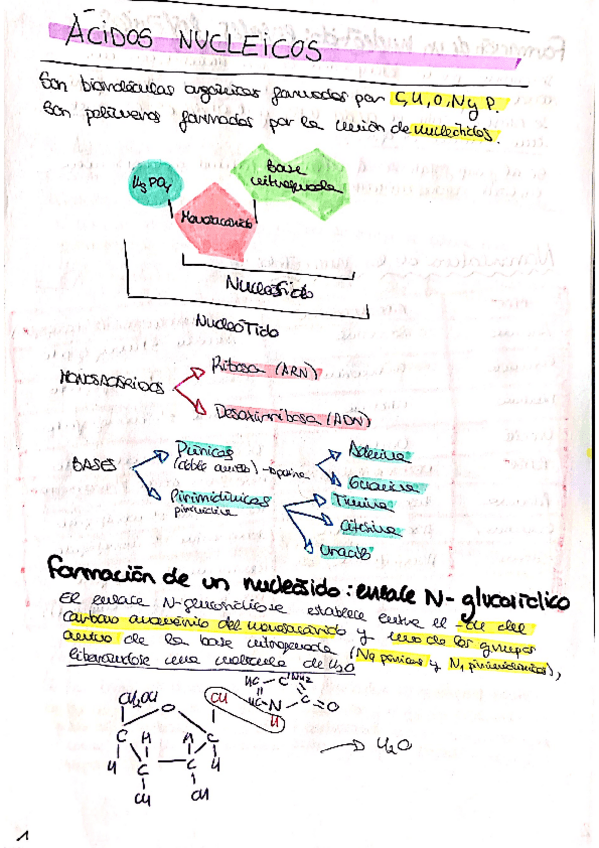 ÁCIDOS NUCLEICOS
Son biomoléculas orgánicas formadas por C, H, O, N y P.
Son polímeros formados por la unión de nucleótidos.
H3PO4
Base nitrogenada
Monosacárido
Nucleósido
Nucleótido
MONOSACÁRIDOS
Ribosa (ARN)
Desoxirribosa (ADN)
BASES
Púricas
(doble anillo)
Adenina
Guanina
Pirimidínicas
pirimidina
Timina
Citosina
Uracilo
Formación de un nucleósido: enlace N-glucosídico
El enlace N-glucosídico se establece entre el -OH del
carbono anomérico del monosacárido y uno de los grupos
amino de la base nitrogenada (N9 púricas y N1 pirimidínicas),
liberándose una molécula de H2O
HC
C
NH2
HC
N
C
O
H
CH2OH
O
OH
C H H C
H C C H
OH OH
H2O
1